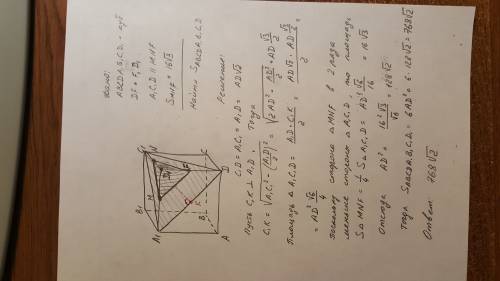 Дано:
ABCDA₁B₁C₁D₁ - куб
DF = F₁D₁
A₁C₁D || MNF
S_MNF = 16√3
Найти: S_ABCDA₁B₁C₁D₁
Решение:
Пусть C₁K ⊥ A₁D. C₁D = A₁C₁ = A₁D = AD√2
Тогда
C₁K = √(A₁C₁² - (A₁D)²/2) = √(2AD² - AD²/2) = AD √3/2
Площадь ΔA₁C₁D = A₁D · C₁K / 2 = AD√2 · AD √3/2 / 2 =
= AD² √6/4
Поскольку сторона ΔMNF в 2 раза
меньше стороны ΔA₁C₁D, то площадь
SΔMNF = 1/4 SΔA₁C₁D = AD² √6/16 = 16√3
Отсюда AD² = 16²√3/√6 = 128√2
Тогда S_ABCDA₁B₁C₁D₁ = 6AD² = 6·128√2 = 768√2
Ответ: 768√2
C₁
N
C
B₁
M
F
D
K
B
A₁
A